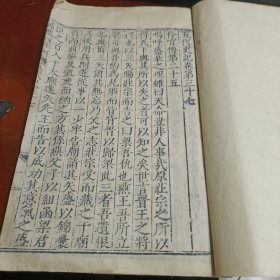 五代史記卷第三十七
伶官傳第二十五
嗚呼盛衰之理雖曰天命豈非人事哉原莊宗之所以
得天下與其所以失之者可以知之矣世言晉王之將
終也以三矢賜莊宗而告之曰梁吾仇也燕王吾所立
契丹與吾約為兄弟而皆背晉以歸梁此三者吾遺恨
也與爾三矢爾其無忘乃父之志莊宗受而藏之于廟
其後用兵則遣從事以一少牢告廟請其矢盛以錦囊
負而前驅及凱旋而納之方其係燕父子以組函梁君
臣之首入于太廟還矢先王而告以成功其意氣之盛